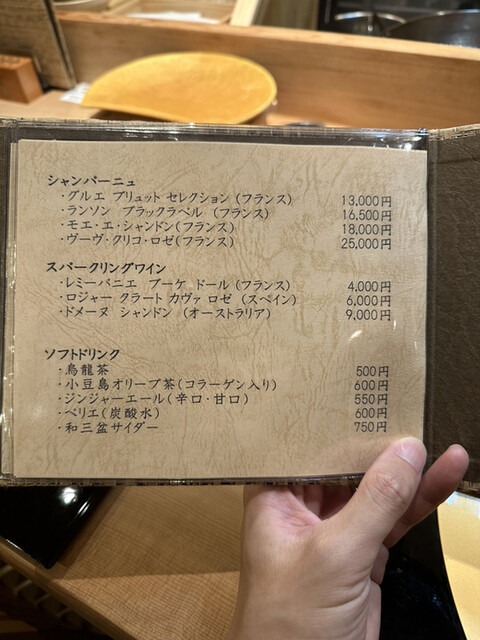 シャンパーニュ
・グルエ ブリュット セレクション (フランス) 13,000円
・ランソン ブラックラベル (フランス) 16,500円
・モエ・エ・シャンドン(フランス) 18,000円
・ヴーヴ・クリコ・ロゼ(フランス) 25,000円
スパークリングワイン
・レミーパニエ ブーケ ドール (フランス) 4,000円
・ロジャー グラート カヴァ ロゼ (スペイン) 6,000円
・ドメーヌ シャンドン (オーストラリア) 9,000円
ソフトドリンク
・烏龍茶 500円
・小豆島オリーブ茶(コラーゲン入り) 600円
・ジンジャーエール(辛口・甘口) 550円
・ペリエ(炭酸水) 600円
・和三盆サイダー 750円